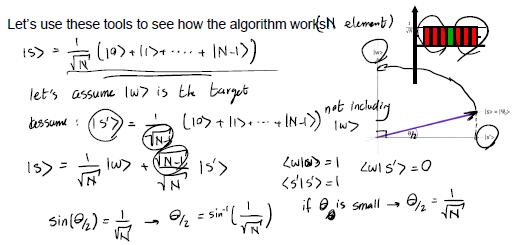 Let's use these tools to see how the algorithm works (N element)
|s> = 1/√N (|0> + |1> + ····· + |N-1>)
let's assume |w> is the target
assume : |s'> = 1/√N-1 (|0> + |1> + ··· + |N-1>) not including |w>
|s> = 1/√N |w> + √N-1/√N |s'>
<w|w> = 1 <w|s'> = 0
<s'|s'> = 1
sin(θ/2) = 1/√N → θ/2 = sin⁻¹(1/√N)
if θ is small → θ/2 = 1/√N
|w>
θ/2
|s'>